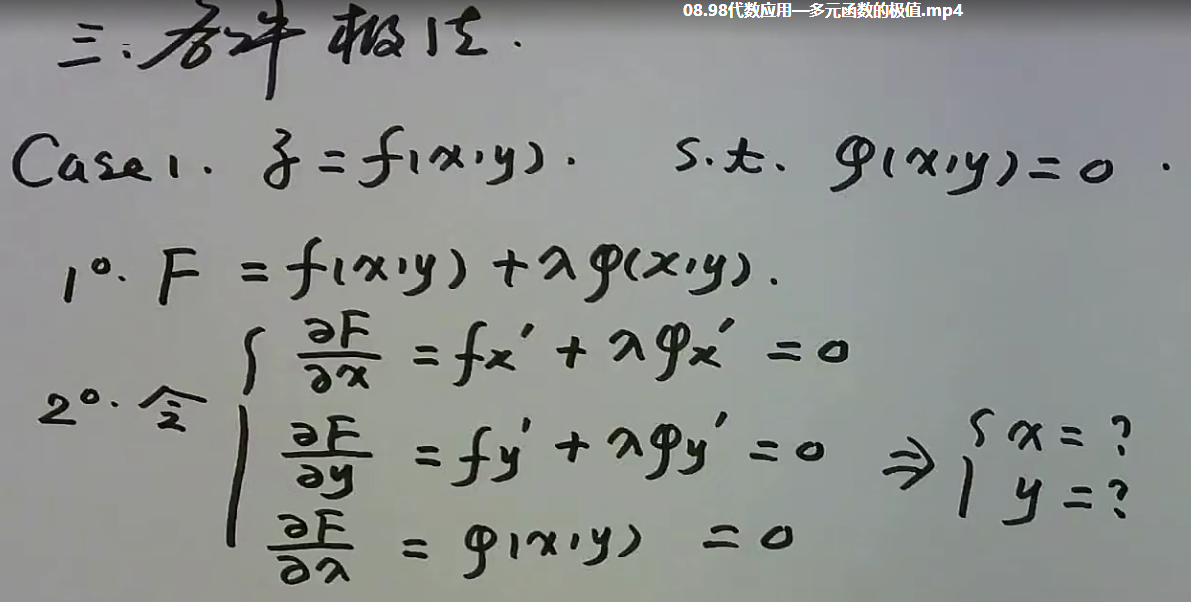 08.98代数应用—多元函数的极值.mp4
三. 条件极值.
Case 1. z = f(x,y). s.t. φ(x,y) = 0.
1°. F = f(x,y) + λφ(x,y).
2°. 令 { ∂F/∂x = fx' + λφx' = 0
∂F/∂y = fy' + λφy' = 0 ⇒ { x = ?
y = ?
∂F/∂λ = φ(x,y) = 0